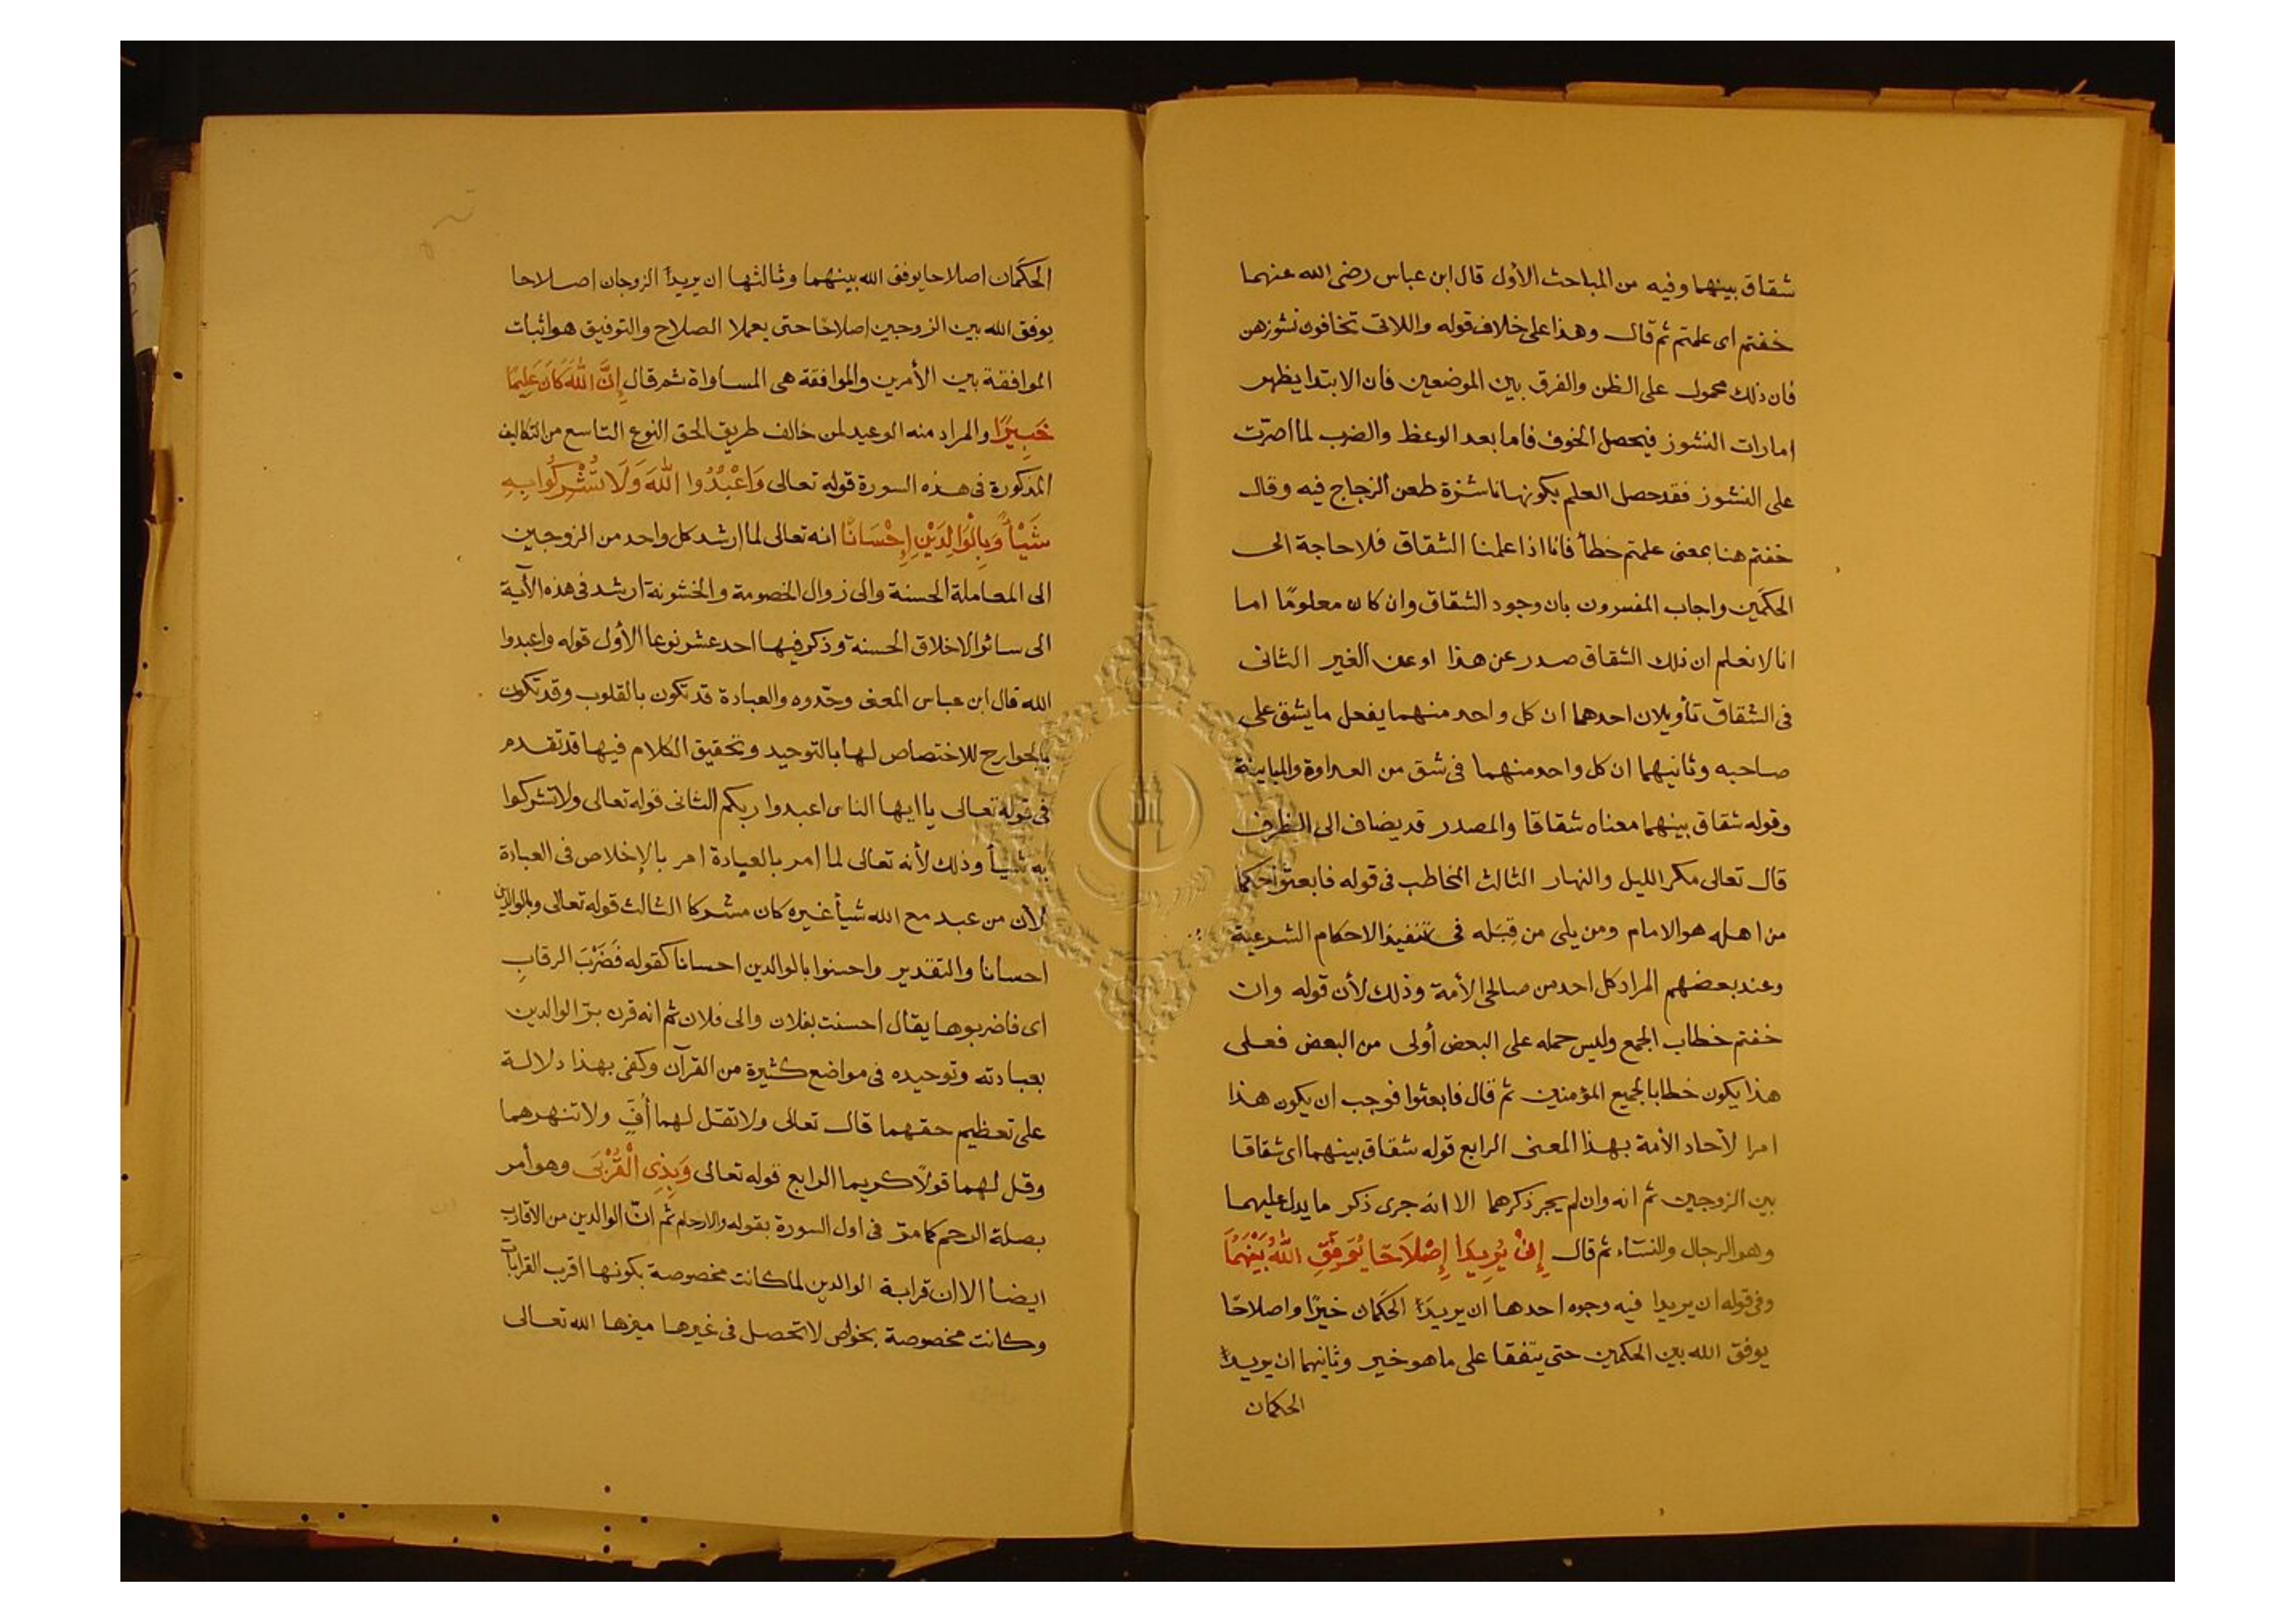 شقاق بينهما وفيه من المباحث الأول قال ابن عباس رضى الله عنهما
خفتم اى علمتم ثم قال وهذا على خلاف قوله واللاتى تخافون نشوزهن
فان ذلك محمول على الظن والفرق بين الموضعين فان الابتدا يظهر
امارات النشوز فيحصل الخوف فاما بعد الوعظ والضرب لما اصرّت
على النشوز فقد حصل العلم بكونها ناشزة طعن الزجاج فيه وقال
خفتم هنا بمعنى علمتم خطأ فانا اذا علمنا الشقاق فلا حاجة الى
الحكَمين واجاب المفسرون بان وجود الشقاق وان كان معلومًا اما
انا لا نعلم ان ذلك الشقاق صدر عن هذا او عن الغير الثانى
فى الشقاق تأويلان احدهما ان كل واحد منهما يفعل ما يشق على
صاحبه وثانيهما ان كل واحد منهما فى شق من العداوة والمباينة
وقوله شقاق بينهما معناه شقاقا والمصدر قد يضاف الى الظرف
قال تعالى مكر الليل والنهار الثالث المخاطب فى قوله فابعثوا حكما
من اهله هو الامام ومن يلى من قِبَله فى تنفيذ الاحكام الشرعية
وعند بعضهم المراد كل احد من صالحى الأمة وذلك لأن قوله وان
خفتم خطاب الجمع وليس حمله على البعض أولى من البعض فعلى
هذا يكون خطابا لجميع المؤمنين ثم قال فابعثوا فوجب ان يكون هذا
امرا لآحاد الأمة بهذا المعنى الرابع قوله شقاق بينهما اى شقاقا
بين الزوجين ثم انه وان لم يجر ذكرهما الا انه جرى ذكر ما يدل عليهما
وهو الرجال والنساء ثم قال إِنْ يُرِيدَا إِصْلَاحًا يُوَفِّقِ اللهُ بَيْنَهُمَا
وفى قوله ان يريدا فيه وجوه احدها ان يريدَا الحكَمان خيرًا واصلاحًا
يوفق الله بين الحكمين حتى يتفقا على ما هو خير وثانيهما ان يريدا
الحكمان
الحكَمان اصلاحا يوفق الله بينهما وثالثها ان يريدا الزوجان اصلاحا
يوفق الله بين الزوجين اصلاحًا حتى يعملا الصلاح والتوفيق هو اثبات
الموافقة بين الأمرين والموافقة هى المساواة ثم قال إِنَّ اللهَ كَانَ عَلِيمًا
خَبِيرًا والمراد منه الوعيد لمن خالف طريق الحق النوع التاسع من التكاليف
المذكورة فى هذه السورة قوله تعالى وَاعْبُدُوا اللهَ وَلَا تُشْرِكُوا بِهِ
شَيْأً وَبِالْوَالِدَيْنِ إِحْسَانًا انه تعالى لما ارشد كل واحد من الزوجين
الى المعاملة الحسنة والى زوال الخصومة والخشونة ارشد فى هذه الآية
الى سائر الاخلاق الحسنة وذكر فيها احد عشر نوعا الأول قوله واعبدوا
الله قال ابن عباس المعنى وحّدوه والعبادة قد تكون بالقلوب وقد تكون
بالجوارح للاختصاص لها بالتوحيد وتحقيق الكلام فيها قد تقدم
فى قوله تعالى يا ايها الناس اعبدوا ربكم الثانى قوله تعالى ولا تشركوا
به شيأ وذلك لأنه تعالى لما امر بالعبادة امر بالإخلاص فى العبادة
لأن من عبد مع الله شيأ غيره كان مشركا الثالث قوله تعالى وبالوالدين
احسانا والتقدير واحسنوا بالوالدين احسانا كقوله فَضَرْبَ الرقابِ
اى فاضربوها يقال احسنت بفلان والى فلان ثم انه قرن برّ الوالدين
بعبادته وتوحيده فى مواضع كثيرة من القرآن وكفى بهذا دلالة
على تعظيم حقهما قال تعالى ولا تقل لهما أُفٍّ ولا تنهرهما
وقل لهما قولًا كريما الرابع قوله تعالى وَبِذِى الْقُرْبَى وهو أمر
بصلة الرحم كما مرّ فى اول السورة بقوله والارحام ثم انّ الوالدين من الأقارب
ايضا الا ان قرابة الوالدين لما كانت مخصوصة بكونها اقرب القرابات
وكانت مخصوصة بخواص لا تحصل فى غيرها ميزها الله تعالى